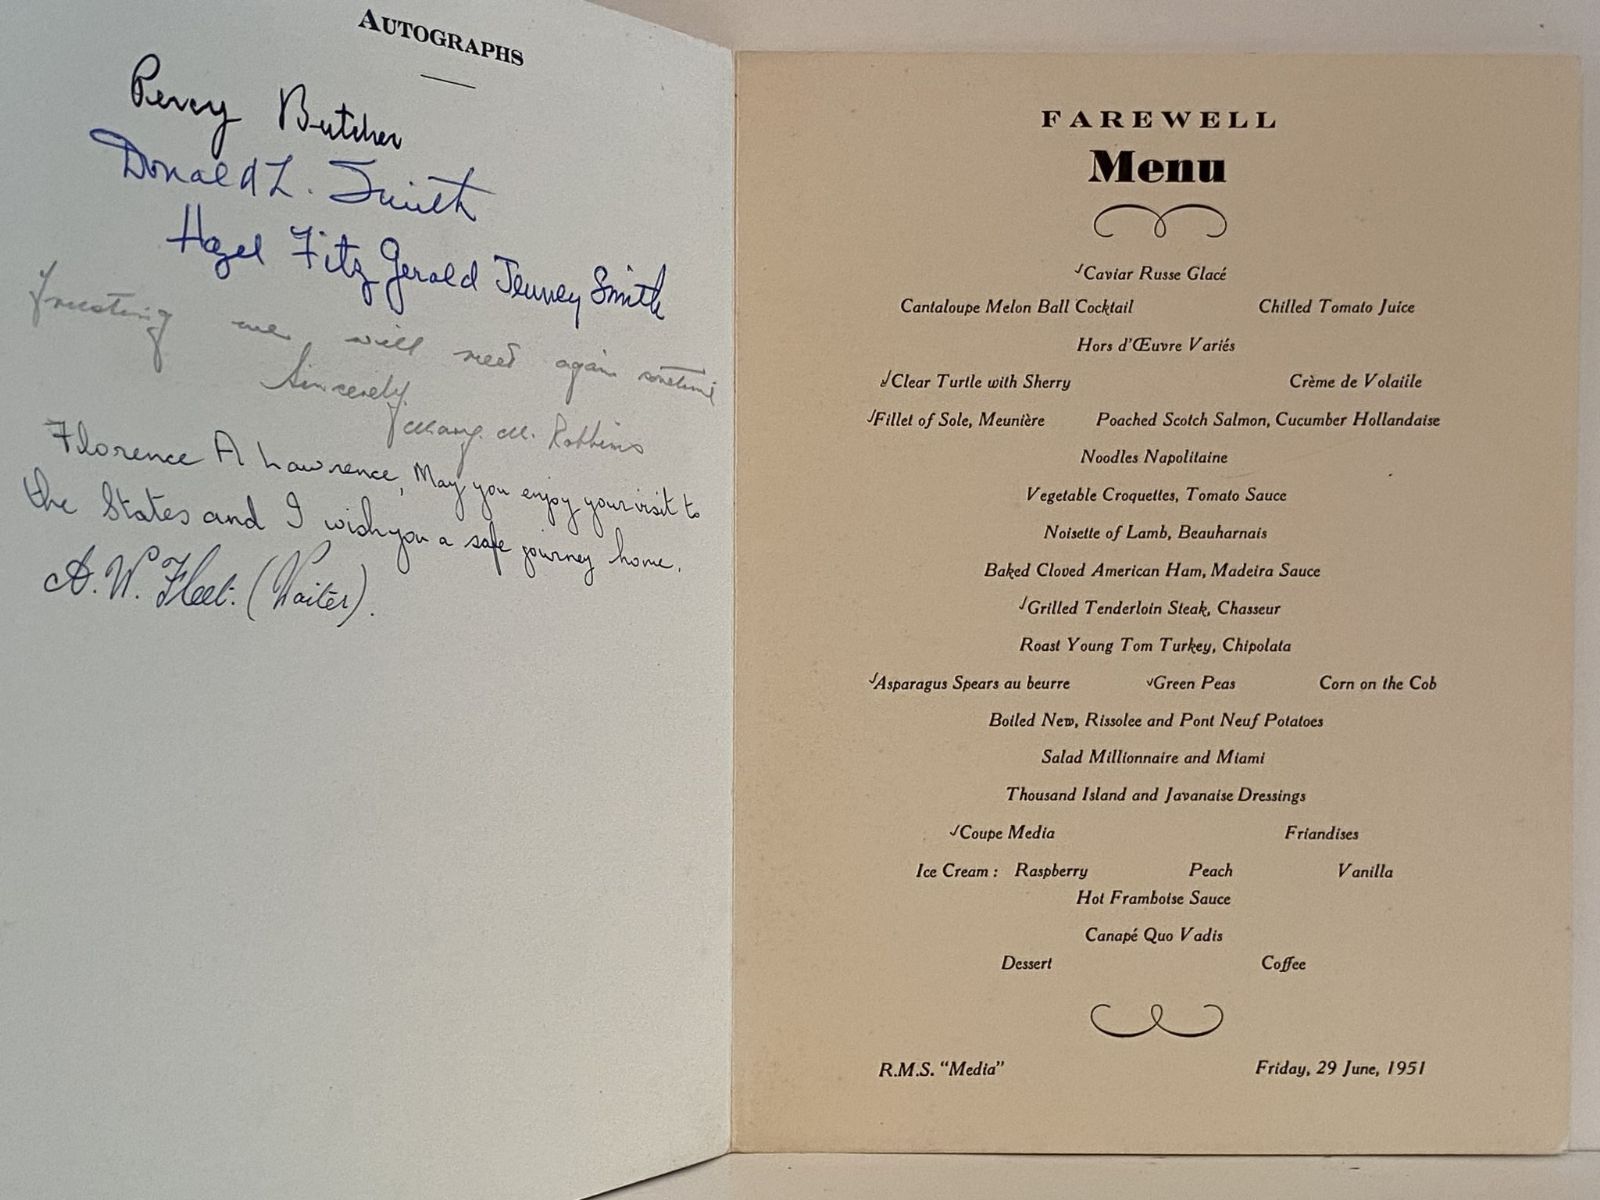 AUTOGRAPHS
Percy Butcher
Donald L. Smith
Hazel FitzGerald Jenney Smith
Trusting we will meet again sometime
Sincerely
Mary M. Robbins
Florence A Lawrence, May you enjoy your visit to
the States and I wish you a safe journey home.
A. W. Fleet. (Waiter).
FAREWELL
Menu
✓Caviar Russe Glacé
Cantaloupe Melon Ball Cocktail Chilled Tomato Juice
Hors d'Œuvre Variés
✓Clear Turtle with Sherry Crème de Volaille
✓Fillet of Sole, Meunière Poached Scotch Salmon, Cucumber Hollandaise
Noodles Napolitaine
Vegetable Croquettes, Tomato Sauce
Noisette of Lamb, Beauharnais
Baked Cloved American Ham, Madeira Sauce
✓Grilled Tenderloin Steak, Chasseur
Roast Young Tom Turkey, Chipolata
✓Asparagus Spears au beurre ✓Green Peas Corn on the Cob
Boiled New, Rissolee and Pont Neuf Potatoes
Salad Millionnaire and Miami
Thousand Island and Javanaise Dressings
✓Coupe Media Friandises
Ice Cream : Raspberry Peach Vanilla
Hot Framboise Sauce
Canapé Quo Vadis
Dessert Coffee
R.M.S. "Media" Friday, 29 June, 1951